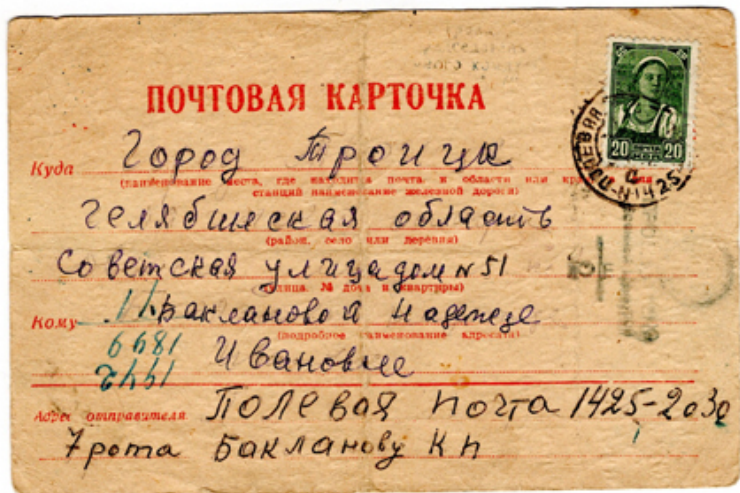 ПОЧТОВАЯ КАРТОЧКА
20 20
ПОЛЕВАЯ
N1425
Куда Город Троицк
(наименование места, где находится почта, и области или края, для
станций наименование железной дороги)
Челябинская область
(район, село или деревня)
Советская улица дом №51
(улица, № дома и квартиры)
Кому Баклановой Надежде
(подробное наименование адресата)
Ивановне
1899
1942
Адрес отправителя Полевая почта 1425-203
7 рота Бакланову К П